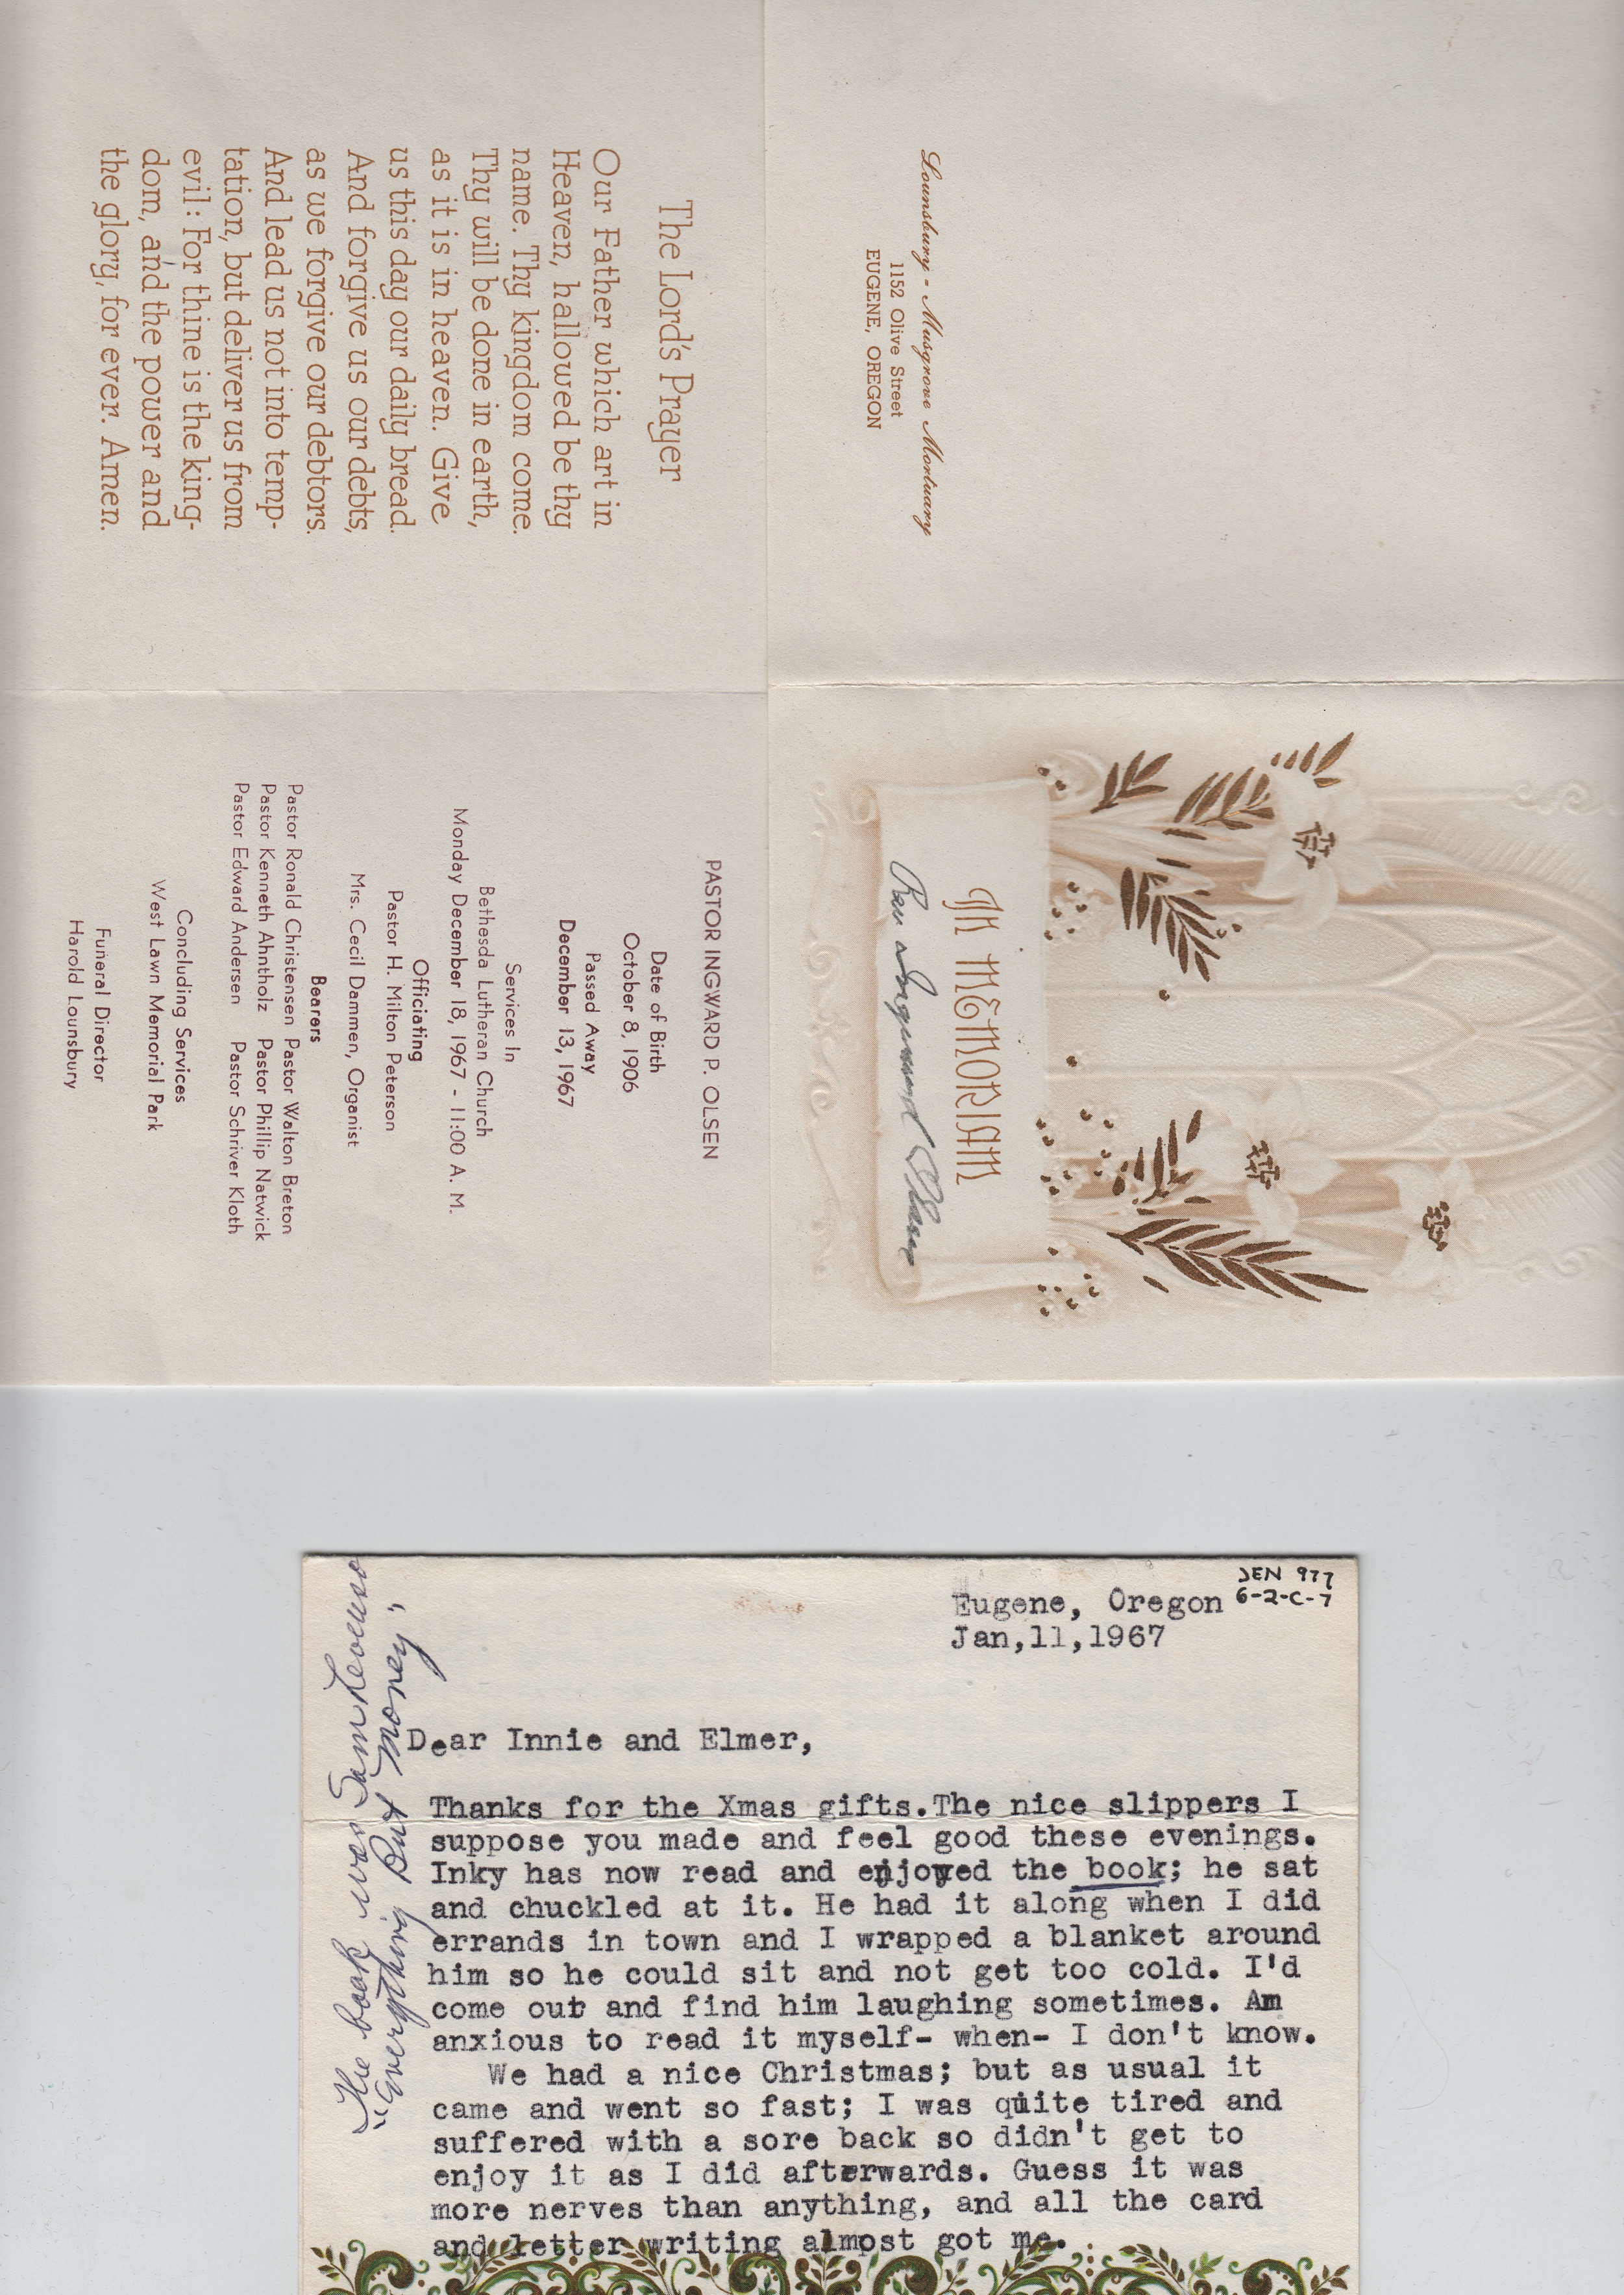 Lounsbury - Musgrove Mortuary
1152 Olive Street
EUGENE, OREGON
IN MEMORIAM
Rev Ingward Olsen
The Lord's Prayer
Our Father which art in
Heaven, hallowed be thy
name. Thy kingdom come.
Thy will be done in earth,
as it is in heaven. Give
us this day our daily bread.
And forgive us our debts,
as we forgive our debtors.
And lead us not into temp-
tation, but deliver us from
evil: For thine is the king-
dom, and the power and
the glory, for ever. Amen.
PASTOR INGWARD P. OLSEN
Date of Birth
October 8, 1906
Passed Away
December 13, 1967
Services In
Bethesda Lutheran Church
Monday December 18, 1967 - 11:00 A. M.
Officiating
Pastor H. Milton Peterson
Mrs. Cecil Dammen, Organist
Bearers
Pastor Ronald Christensen Pastor Walton Breton
Pastor Kenneth Ahntholz Pastor Phillip Natwick
Pastor Edward Andersen Pastor Schriver Kloth
Concluding Services
West Lawn Memorial Park
Funeral Director
Harold Lounsbury
JEN 977
6-2-C-7
Eugene, Oregon
Jan,11,1967
Dear Innie and Elmer,
Thanks for the Xmas gifts.The nice slippers I
suppose you made and feel good these evenings.
Inky has now read and enjoyed the book; he sat
and chuckled at it. He had it along when I did
errands in town and I wrapped a blanket around
him so he could sit and not get too cold. I'd
come out and find him laughing sometimes. Am
anxious to read it myself- when- I don't know.
We had a nice Christmas; but as usual it
came and went so fast; I was quite tired and
suffered with a sore back so didn't get to
enjoy it as I did afterwards. Guess it was
more nerves than anything, and all the card
and letter writing almost got me.
The book was Sam Levenson
"Everything But Money"